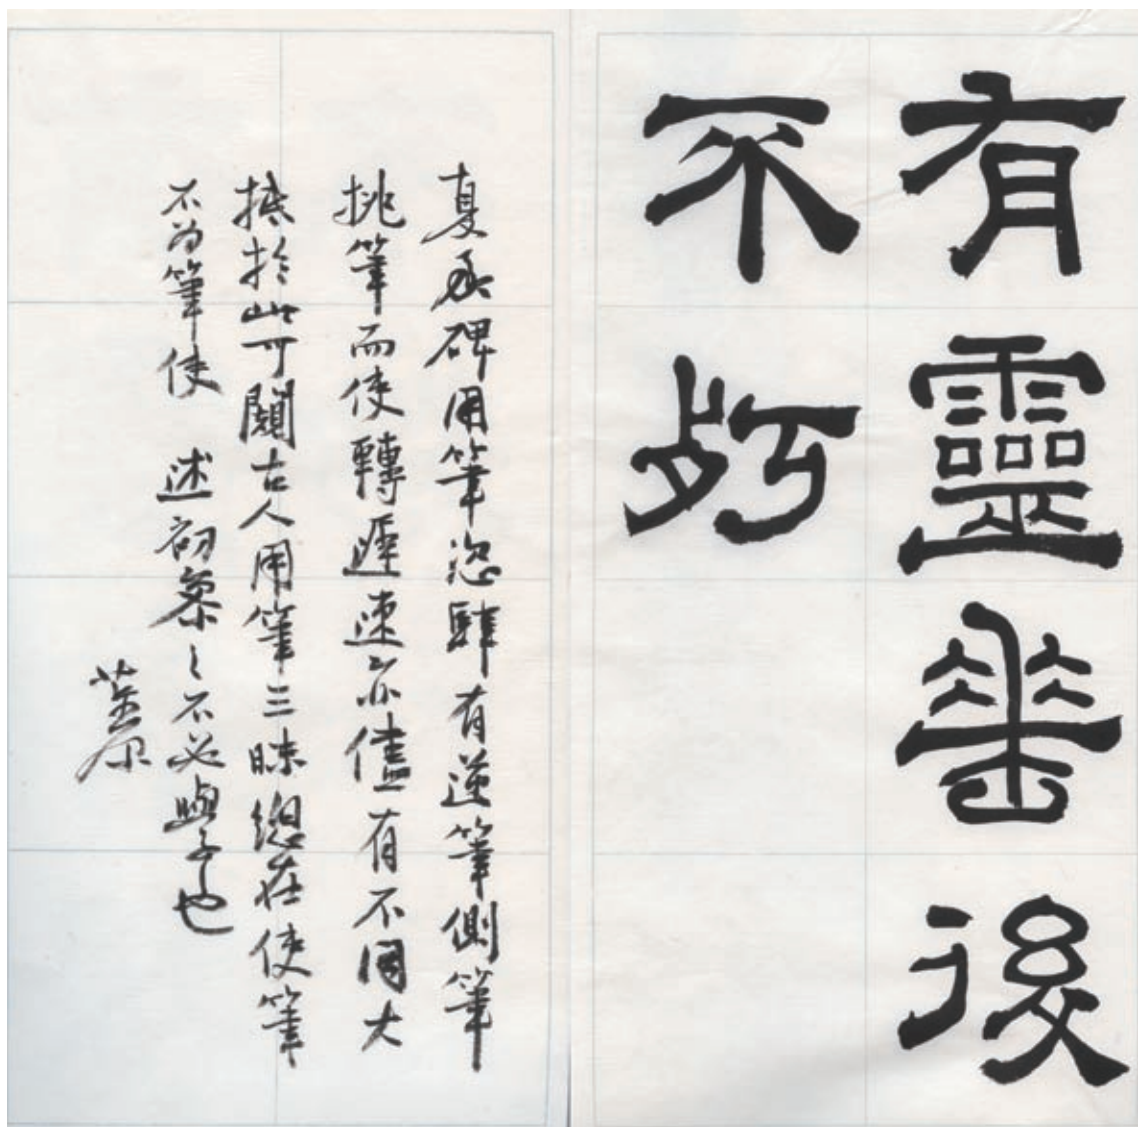 有靈華後
不朽
夏承碑用筆恣肆有逆筆側筆
挑筆而使轉遲速亦儘有不同大
抵於此可闚古人用筆三昧總在使筆
不為筆使 述初彖〻不必與子也